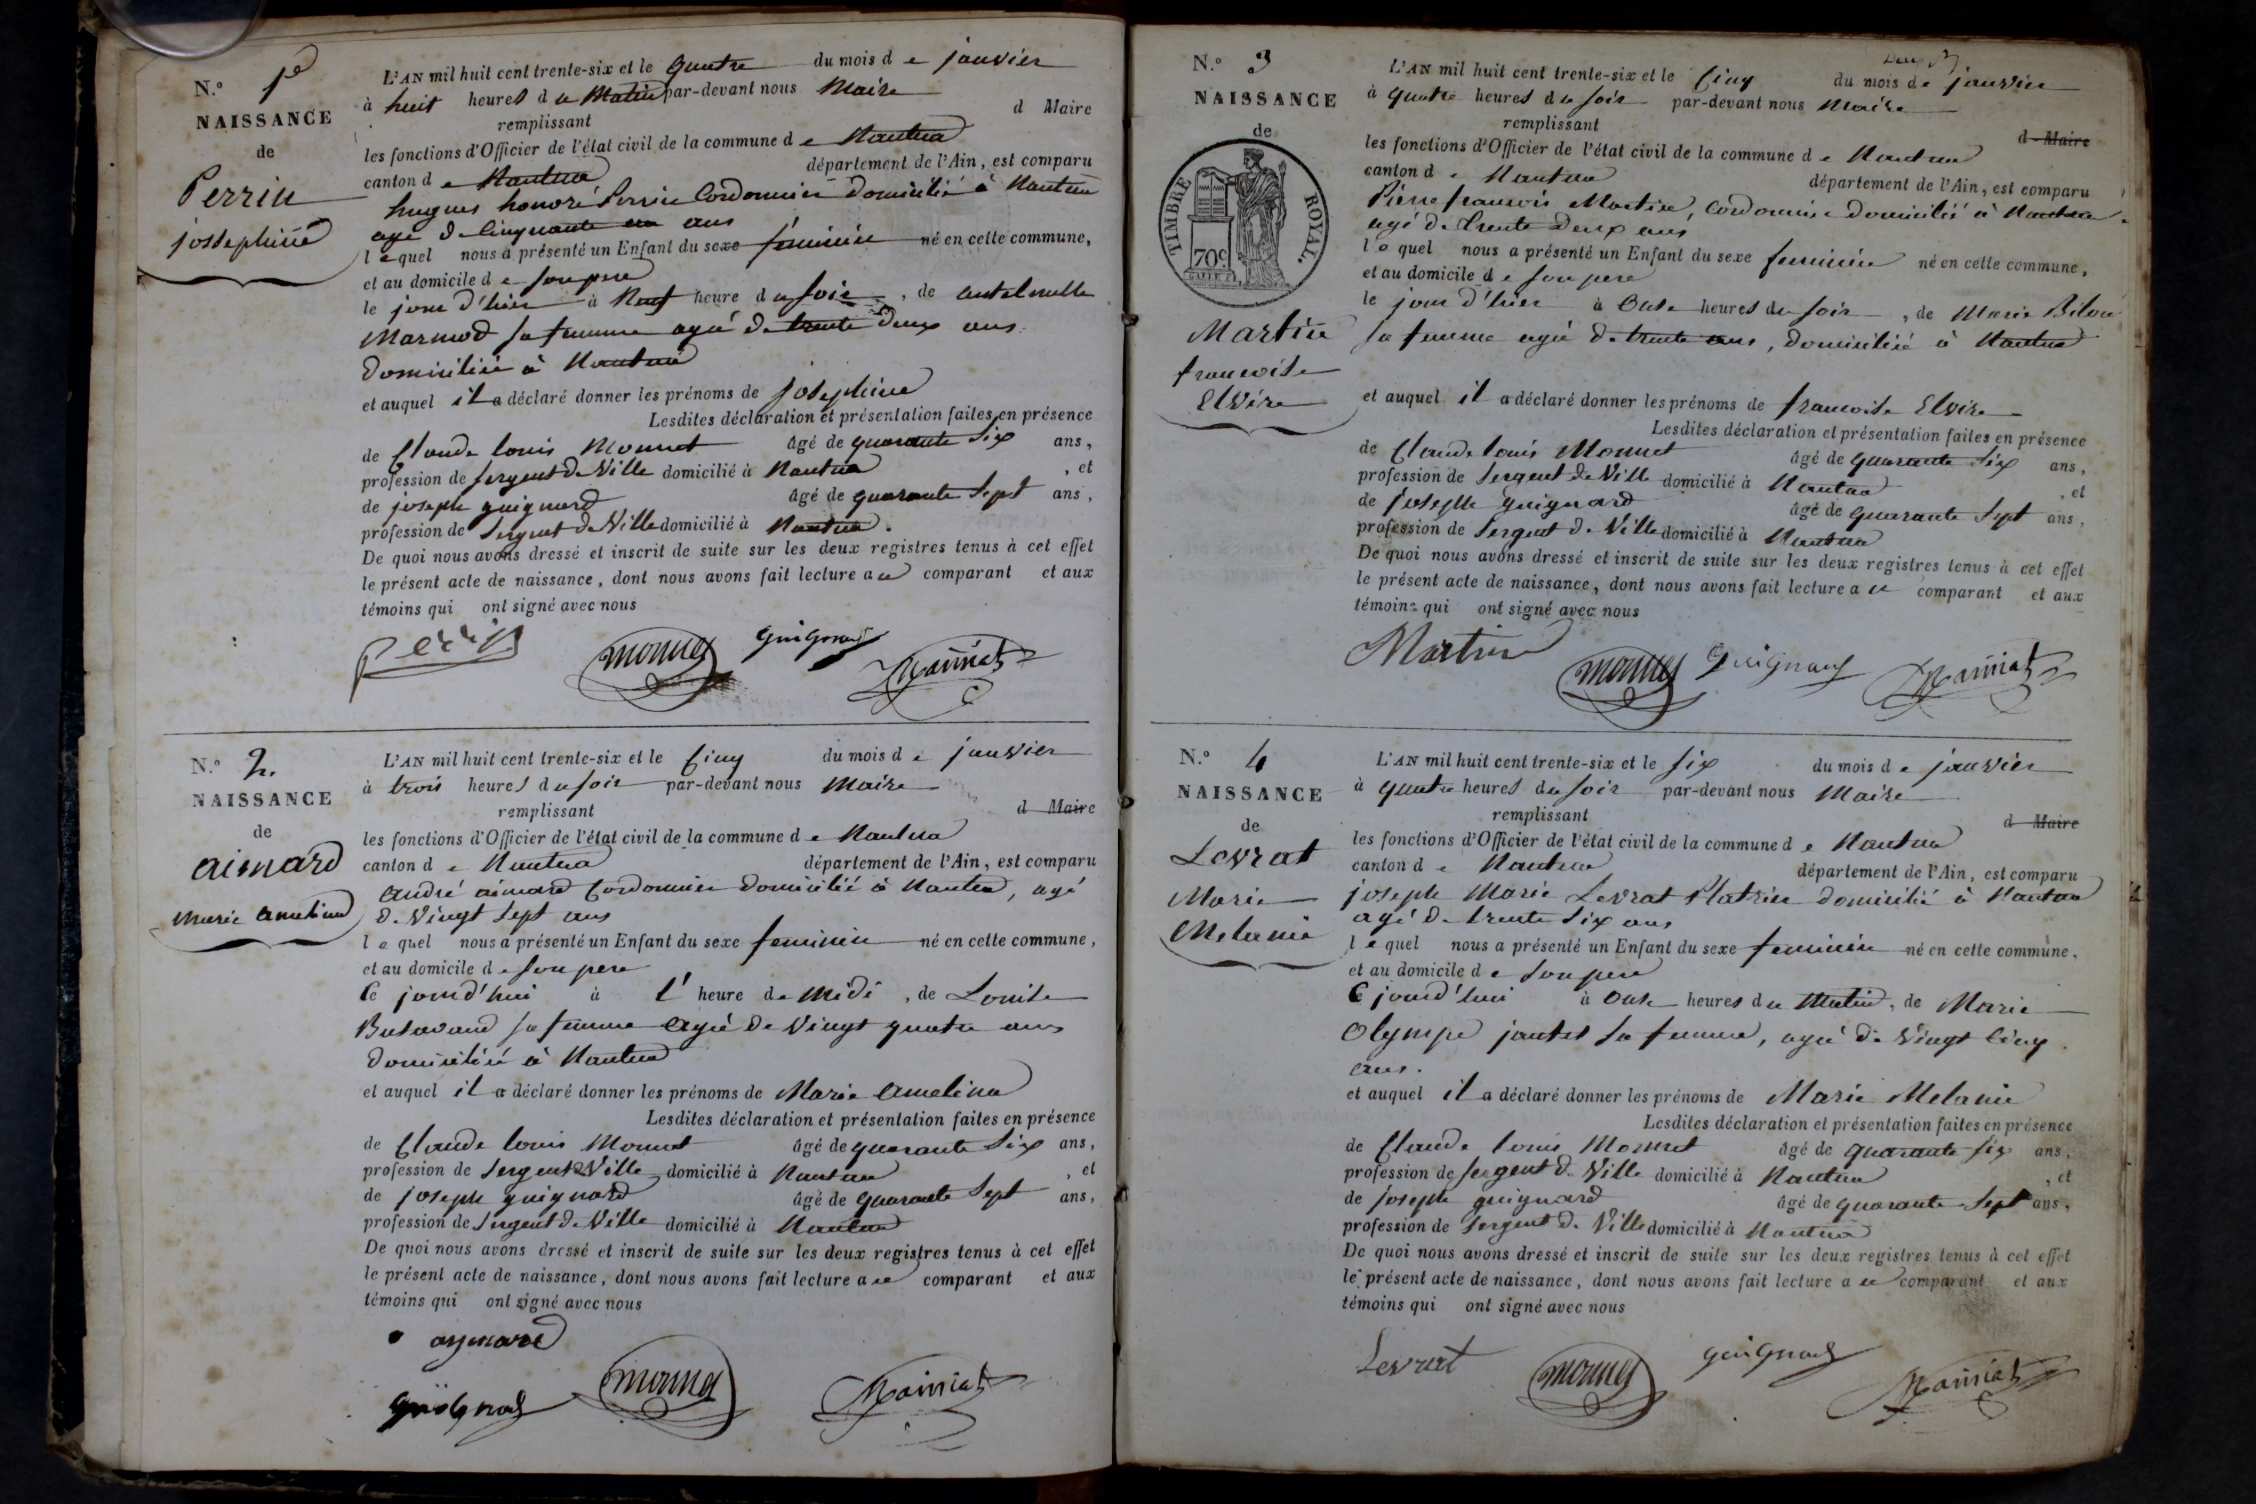 N.° 1e
NAISSANCE
de
Perrin
josephine
L'AN mil huit cent trente-six et le quatre du mois de janvier
à huit heures du Matin par-devant nous Maire
d Maire
remplissant
les fonctions d'Officier de l'état civil de la commune de Nantua
canton de Nantua département de l'Ain, est comparu
hugues honoré Perrin Cordonnier domicilié à Nantua
agé de Cinquante un ans
lequel nous a présenté un Enfant du sexe féminin né en cette commune,
et au domicile de son pere
le jour d'hier à Neuf heure du soir, de
Marmod sa femme agée de trente deux ans
domiciliée à Nantua
et auquel il a déclaré donner les prénoms de josephine
Lesdites déclaration et présentation faites en présence
de Claude louis Monnet âgé de quarante Six ans,
profession de sergent de Ville domicilié à Nantua , et
de joseph guignard âgé de quarante Sept ans,
profession de Sergent de Ville domicilié à Nantua.
De quoi nous avons dressé et inscrit de suite sur les deux registres tenus à cet effet
le présent acte de naissance, dont nous avons fait lecture au comparant et aux
témoins qui ont signé avec nous
Perrin monnet guignard
N.° 2.
NAISSANCE
de
aimard
marie amelina
L'AN mil huit cent trente-six et le Cinq du mois de janvier
à trois heures du soir par-devant nous Maire
remplissant d Maire
les fonctions d'Officier de l'état civil de la commune de Nantua
canton de Nantua département de l'Ain, est comparu
andré aimard Cordonnier domicilié à Nantua, agé
de Vingt Sept ans
lequel nous a présenté un Enfant du sexe feminin né en cette commune,
et au domicile de son pere
Ce jourd'hui à l' heure de Midi, de Louise
sa femme agée de Vingt quatre ans
domiciliée à Nantua
et auquel il a déclaré donner les prénoms de Marie amelina
Lesdites déclaration et présentation faites en présence
de Claude louis Monnet âgé de quarante Six ans,
profession de Sergent de Ville domicilié à Nantua , et
de joseph guignard âgé de quarante Sept ans,
profession de Sergent de Ville domicilié à Nantua
De quoi nous avons dressé et inscrit de suite sur les deux registres tenus à cet effet
le présent acte de naissance, dont nous avons fait lecture au comparant et aux
témoins qui ont signé avec nous
aymard
guignard monnet
N.° 3
NAISSANCE
de
TIMBRE ROYAL.
70c
Martin
francoise
Elvire
L'AN mil huit cent trente-six et le Cinq du mois de janvier
à quatre heures du soir par-devant nous Maire
remplissant
d Maire
les fonctions d'Officier de l'état civil de la commune de Nantua
canton de Nantua département de l'Ain, est comparu
Pierre francois Martin, Cordonnier domicilié à Nantua
agé de trente deux ans
lequel nous a présenté un Enfant du sexe feminin né en cette commune,
et au domicile de son pere
le jour d'hier à Onze heures du soir, de Marie
sa femme agée de trente ans, domiciliée à Nantua
et auquel il a déclaré donner les prénoms de francoise Elvire
Lesdites déclaration et présentation faites en présence
de Claude louis Monnet âgé de quarante Six ans,
profession de Sergent de Ville domicilié à Nantua , et
de joseph guignard âgé de quarante Sept ans,
profession de Sergent de Ville domicilié à Nantua
De quoi nous avons dressé et inscrit de suite sur les deux registres tenus à cet effet
le présent acte de naissance, dont nous avons fait lecture au comparant et aux
témoins qui ont signé avec nous
Martin monnet guignard
N.° 4
NAISSANCE
de
Levrat
Marie
Melanie
L'AN mil huit cent trente-six et le six du mois de janvier
à quatre heures du soir par-devant nous Maire
remplissant d Maire
les fonctions d'Officier de l'état civil de la commune de Nantua
canton de Nantua département de l'Ain, est comparu
joseph Marie Levrat Platrier domicilié à Nantua
agé de trente Six ans
lequel nous a présenté un Enfant du sexe feminin né en cette commune,
et au domicile de son pere
Ce jourd'hui à Onze heures du Matin, de Marie
Olympe jantet sa femme, agée de Vingt Cinq
ans.
et auquel il a déclaré donner les prénoms de Marie Melanie
Lesdites déclaration et présentation faites en présence
de Claude louis Monnet âgé de quarante six ans,
profession de sergent de Ville domicilié à Nantua , et
de joseph guignard âgé de quarante Sept ans,
profession de Sergent de Ville domicilié à Nantua
De quoi nous avons dressé et inscrit de suite sur les deux registres tenus à cet effet
le présent acte de naissance, dont nous avons fait lecture au comparant et aux
témoins qui ont signé avec nous
Levrat monnet guignard